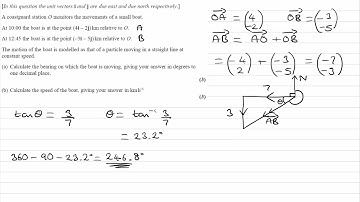 [In this question the unit vectors i and j are due east and due north respectively.]
A coastguard station O monitors the movements of a small boat.
At 10:00 the boat is at the point (4i – 2j) km relative to O. A
At 12:45 the boat is at the point (-3i – 5j) km relative to O. B
The motion of the boat is modelled as that of a particle moving in a straight line at
constant speed.
(a) Calculate the bearing on which the boat is moving, giving your answer in degrees to
one decimal place.
(3)
(b) Calculate the speed of the boat, giving your answer in km h⁻¹
(3)
OA = (4 -2) OB = (-3 -5)
AB = AO + OB
= (-4 2) + (-3 -5) = (-7 -3)
N
7
θ
3
AB
tanθ = 3/7 θ = tan⁻¹ 3/7
= 23.2°
360 - 90 - 23.2° = 246.8°